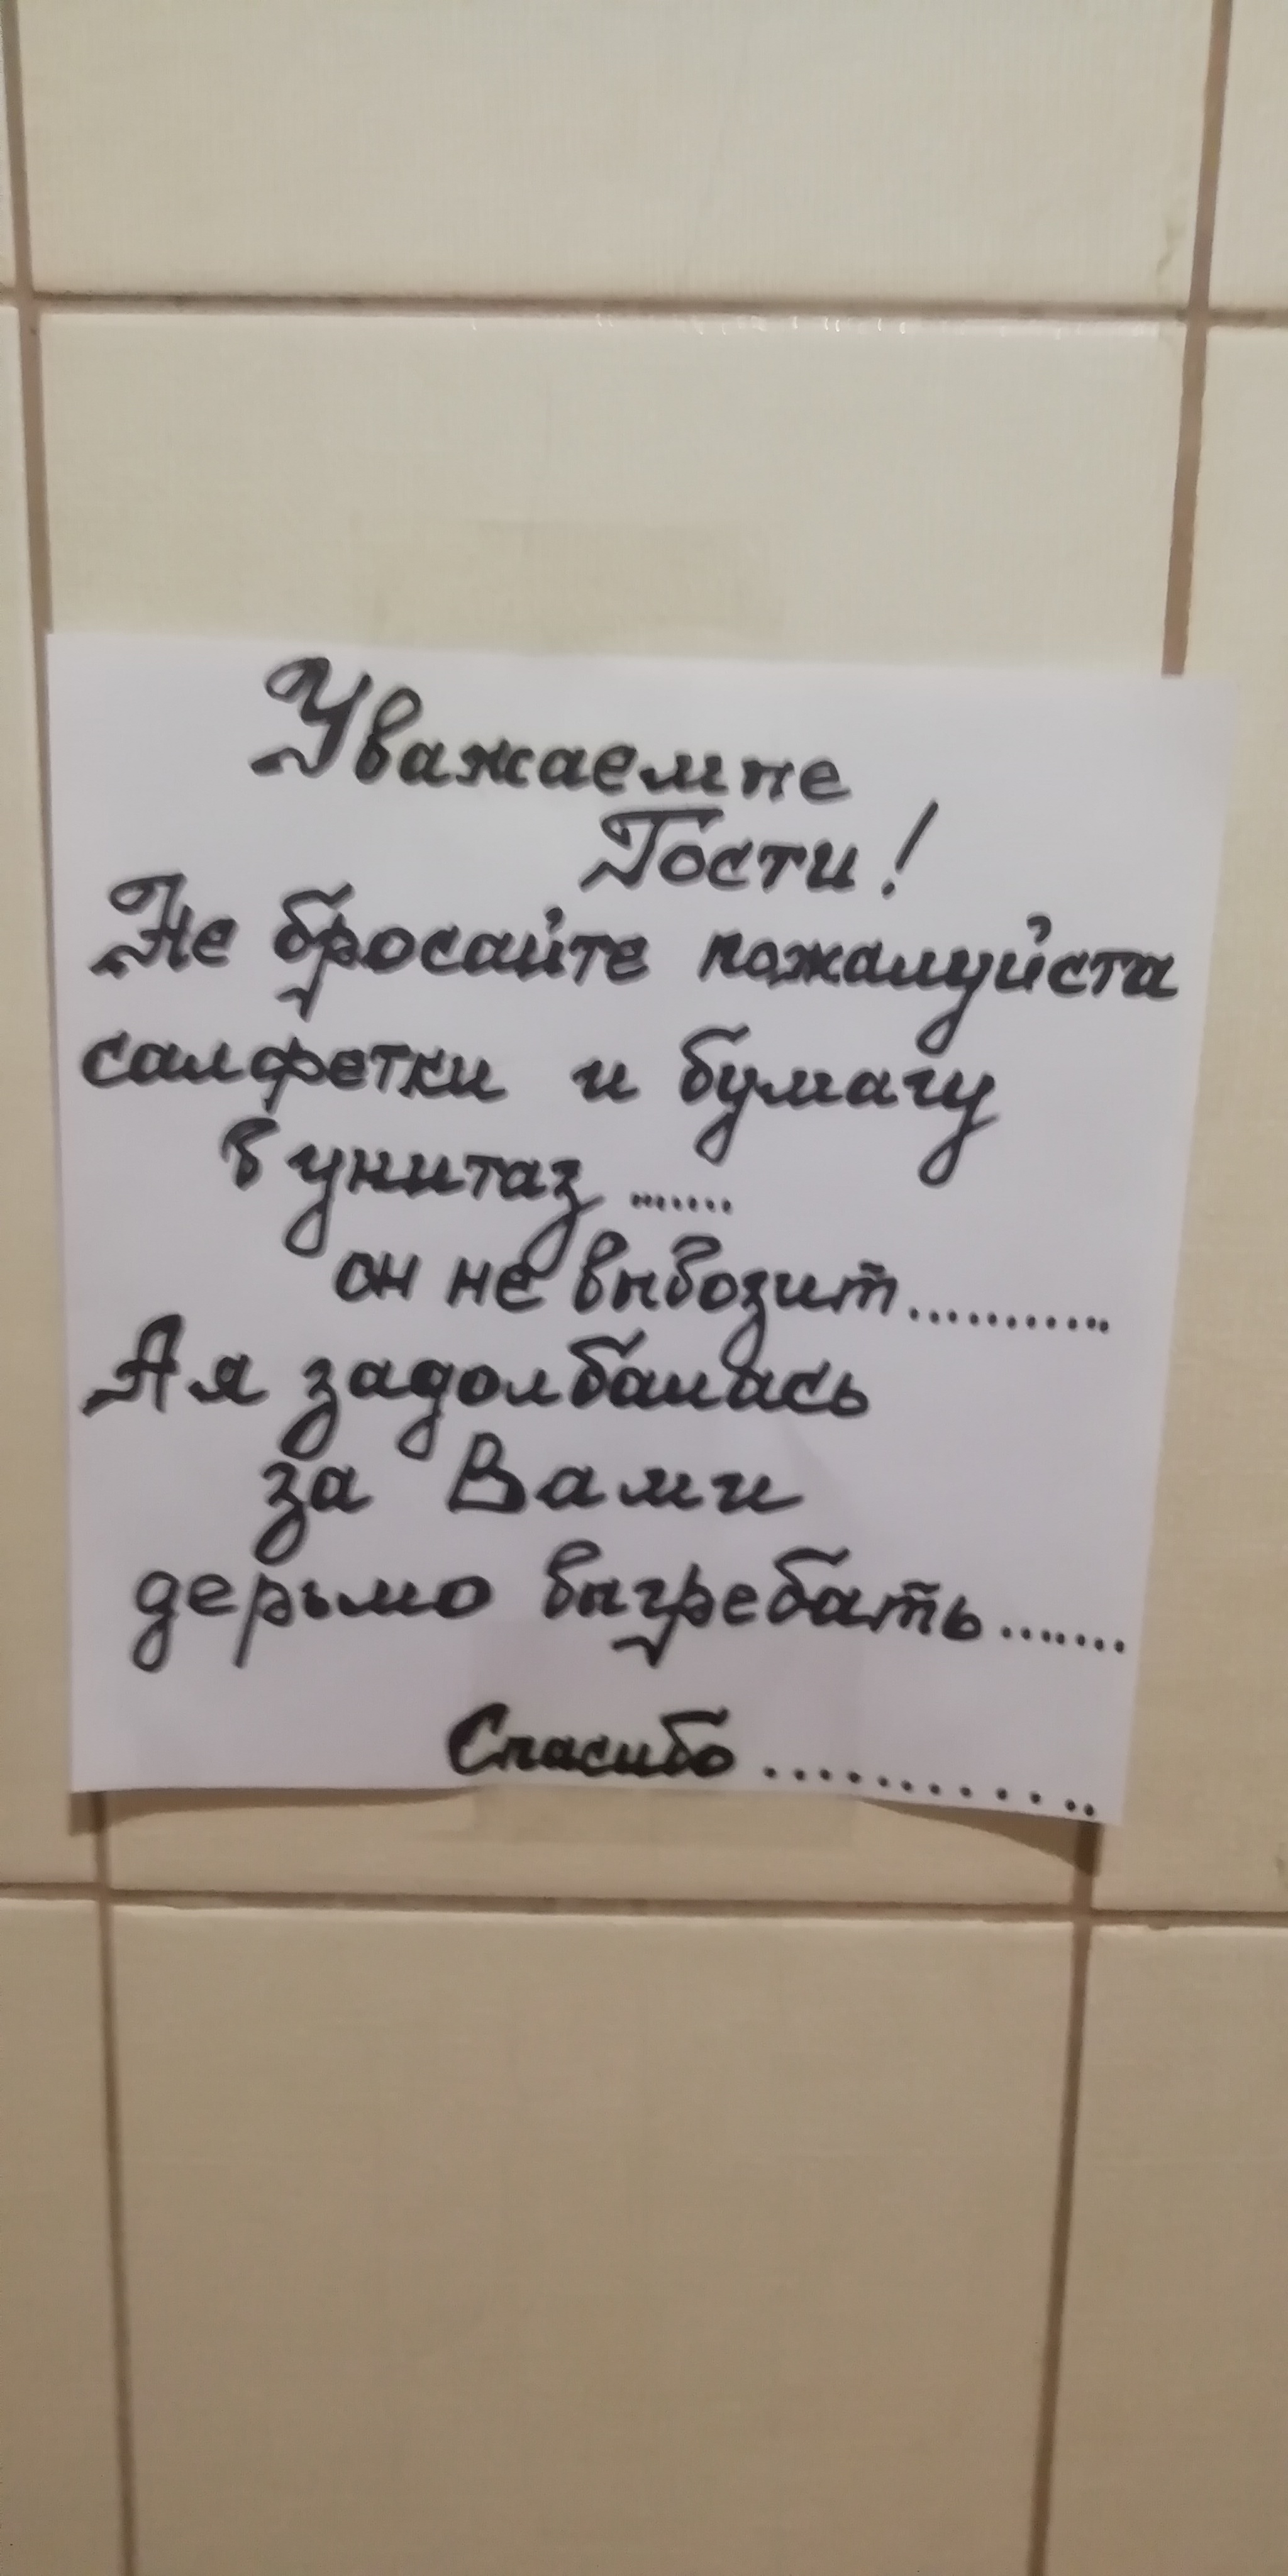 Уважаемые
Гости!
Не бросайте пожалуйста
салфетки и бумагу
в унитаз.......
он не вывозит...........
А я задолбалась
за Вами
дерьмо выгребать.......
Спасибо...........